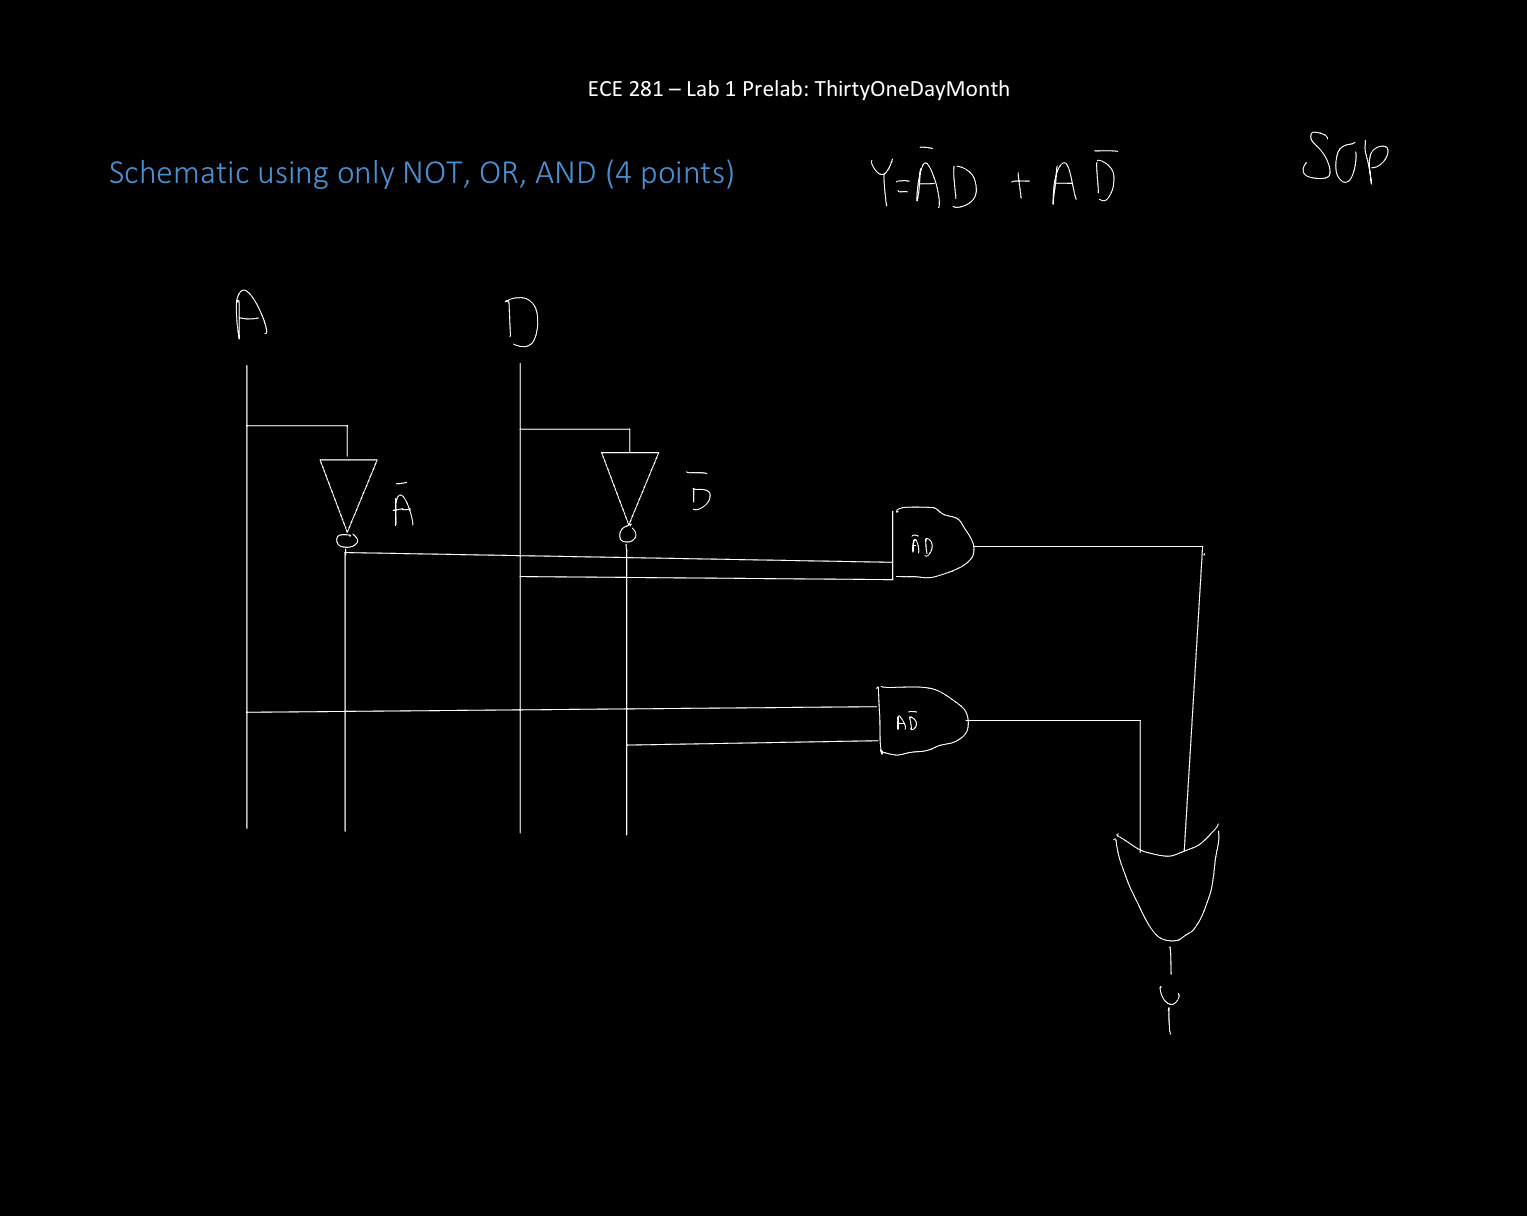 ECE 281 – Lab 1 Prelab: ThirtyOneDayMonth
Schematic using only NOT, OR, AND (4 points)
Y=ĀD + AD̄
SOP
A
D
Ā
D̄
ĀD
AD̄
Y